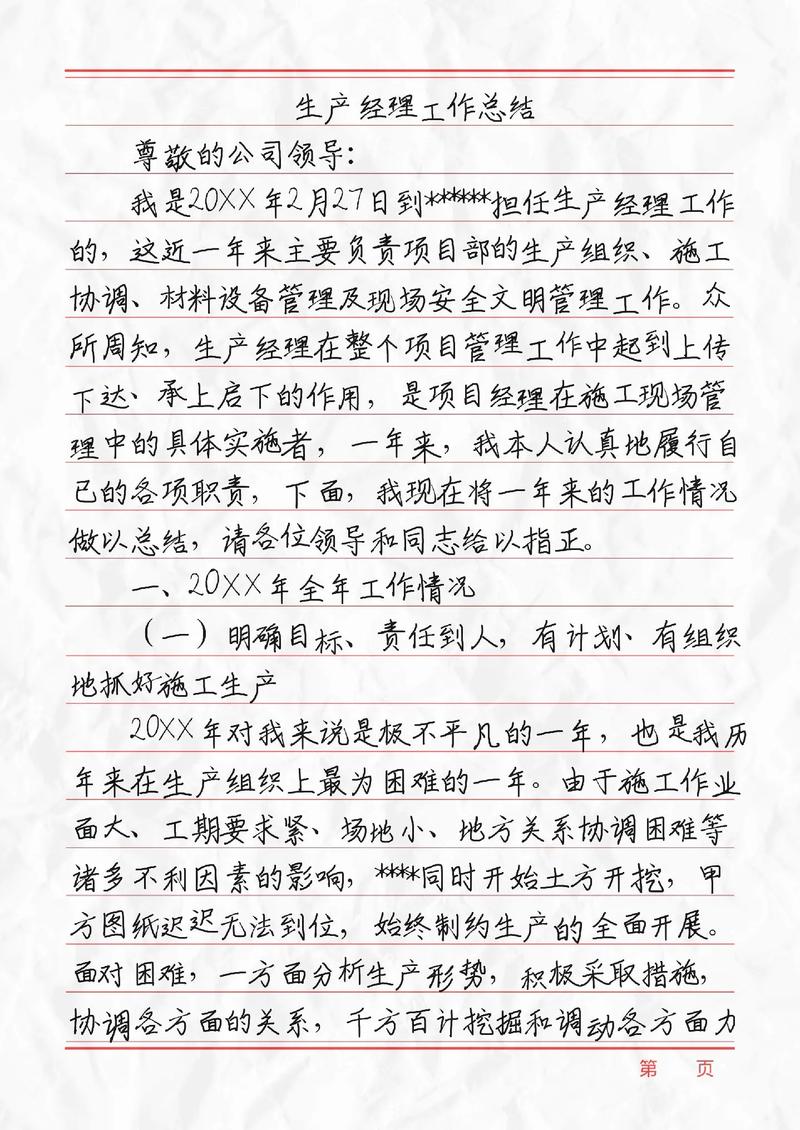 生产经理工作总结
尊敬的公司领导：
我是20XX年2月27日到******担任生产经理工作
的，这近一年来主要负责项目部的生产组织、施工
协调、材料设备管理及现场安全文明管理工作。众
所周知，生产经理在整个项目管理工作中起到上传
下达、承上启下的作用，是项目经理在施工现场管
理中的具体实施者，一年来，我本人认真地履行自
己的各项职责，下面，我现在将一年来的工作情况
做以总结，请各位领导和同志给以指正。
一、20XX年全年工作情况
（一）明确目标、责任到人，有计划、有组织
地抓好施工生产
20XX年对我来说是极不平凡的一年，也是我历
年来在生产组织上最为困难的一年。由于施工作业
面大、工期要求紧、场地小、地方关系协调困难等
诸多不利因素的影响，****同时开始土方开挖，甲
方图纸迟迟无法到位，始终制约生产的全面开展。
面对困难，一方面分析生产形势，积极采取措施，
协调各方面的关系，千方百计挖掘和调动各方面力
第 页